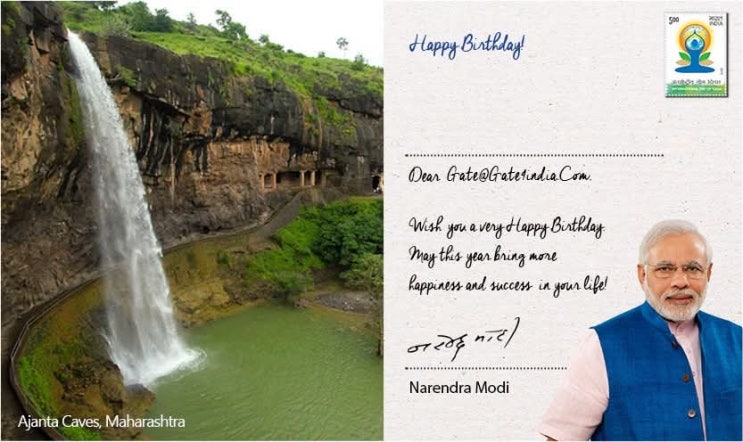 Happy Birthday!
5.00 भारत INDIA
Dear Gate@Gate4india.Com,
Wish you a very Happy Birthday.
May this year bring more
happiness and success in your life!
Narendra Modi
Ajanta Caves, Maharashtra